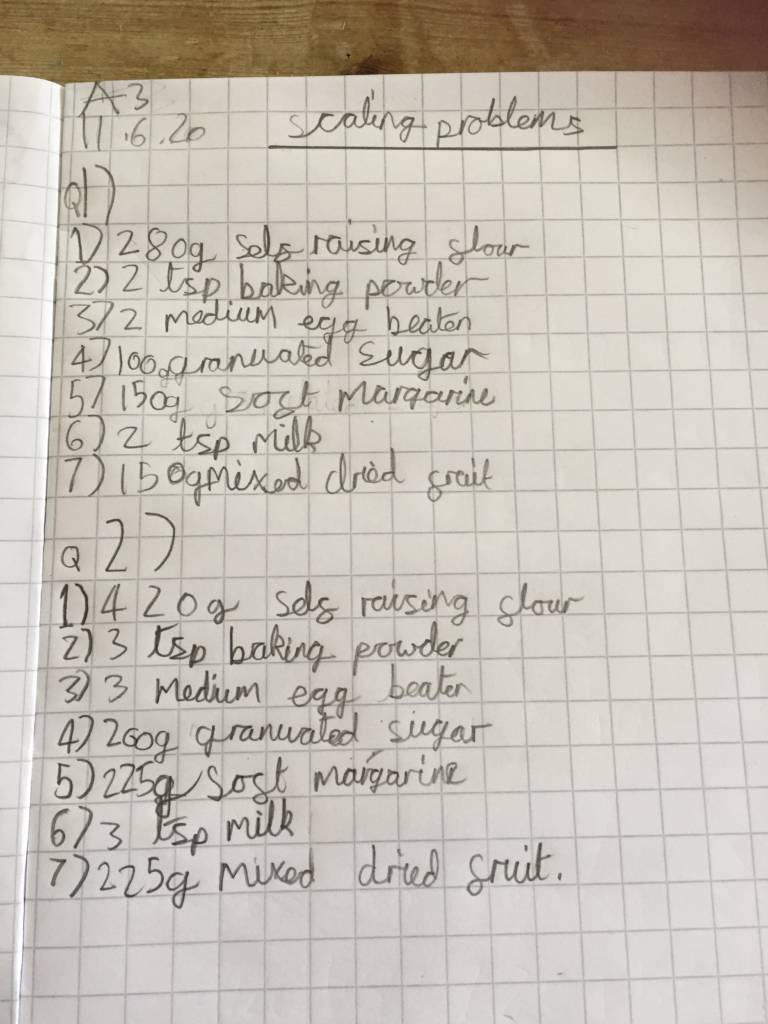 A3
11.6.20
Scaling problems
Q1)
1) 280g self raising flour
2) 2 tsp baking powder
3) 2 medium egg beaten
4) 100g granuated sugar
5) 150g soft margarine
6) 2 tsp milk
7) 150g mixed dried fruit
Q 2)
1) 420g self raising flour
2) 3 tsp baking powder
3) 3 medium egg beaten
4) 200g granuated sugar
5) 225g soft margarine
6) 3 tsp milk
7) 225g mixed dried fruit.